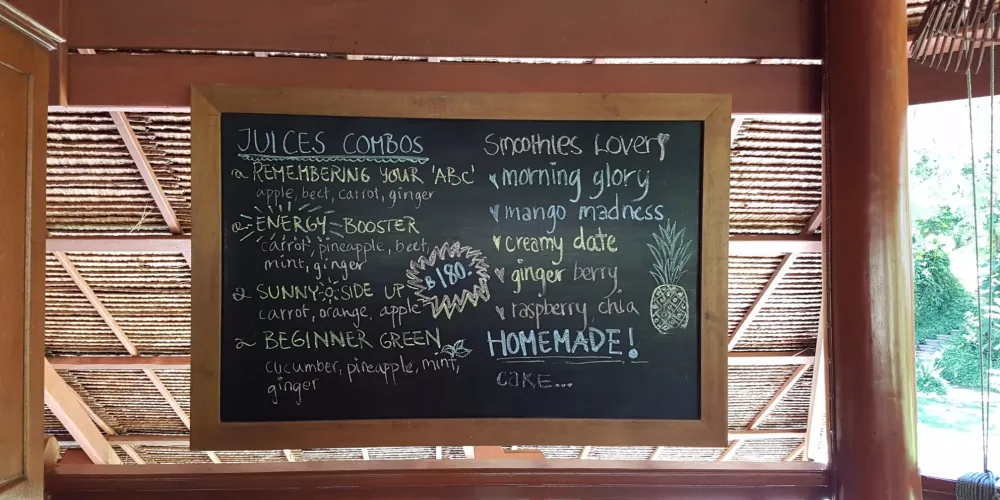 JUICES COMBOS
REMEMBERING YOUR 'ABC'
apple, beet, carrot, ginger
ENERGY-BOOSTER
carrot, pineapple, beet,
mint, ginger
SUNNY SIDE UP
carrot, orange, apple
BEGINNER GREEN
cucumber, pineapple, mint,
ginger
฿180.-
Smoothies Lovery
morning glory
mango madness
creamy date
ginger berry
raspberry chia
HOMEMADE!
CAKE...